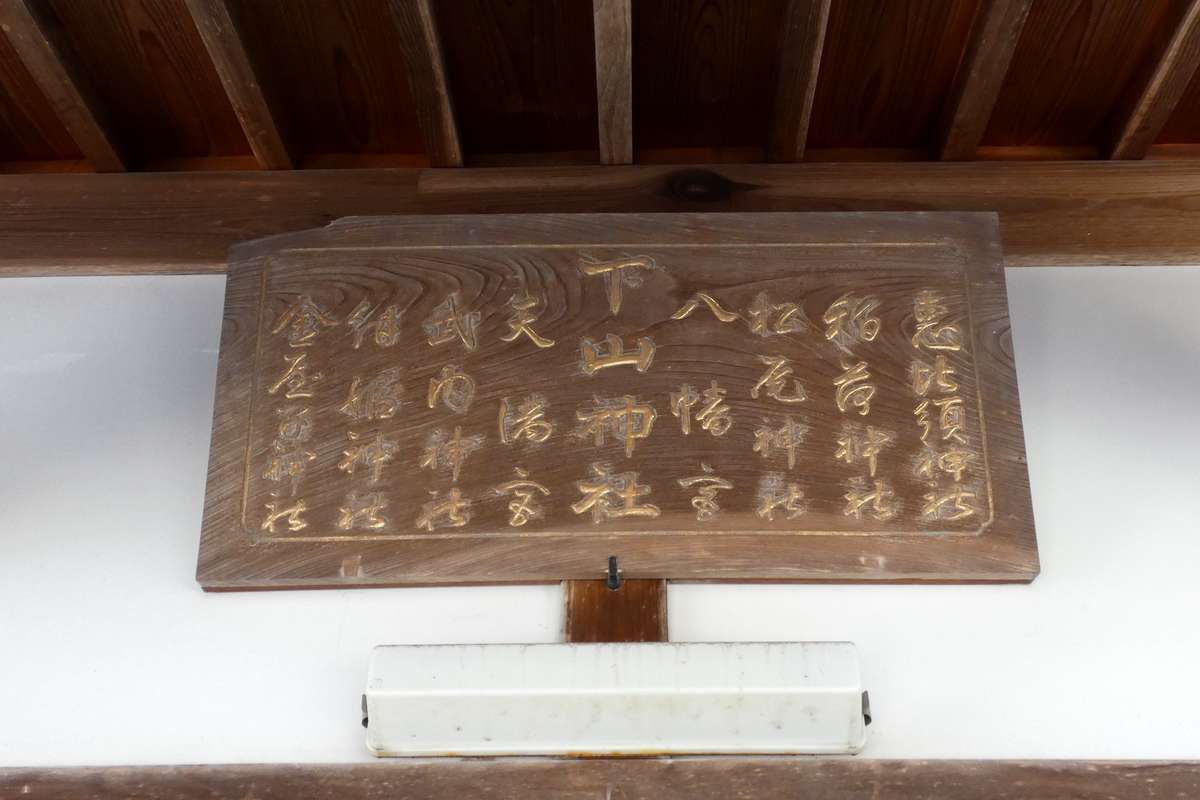 惠比須神社
稲荷神社
松尾神社
八幡宮
下山神社
天満宮
武内神社
神社
金屋子神社